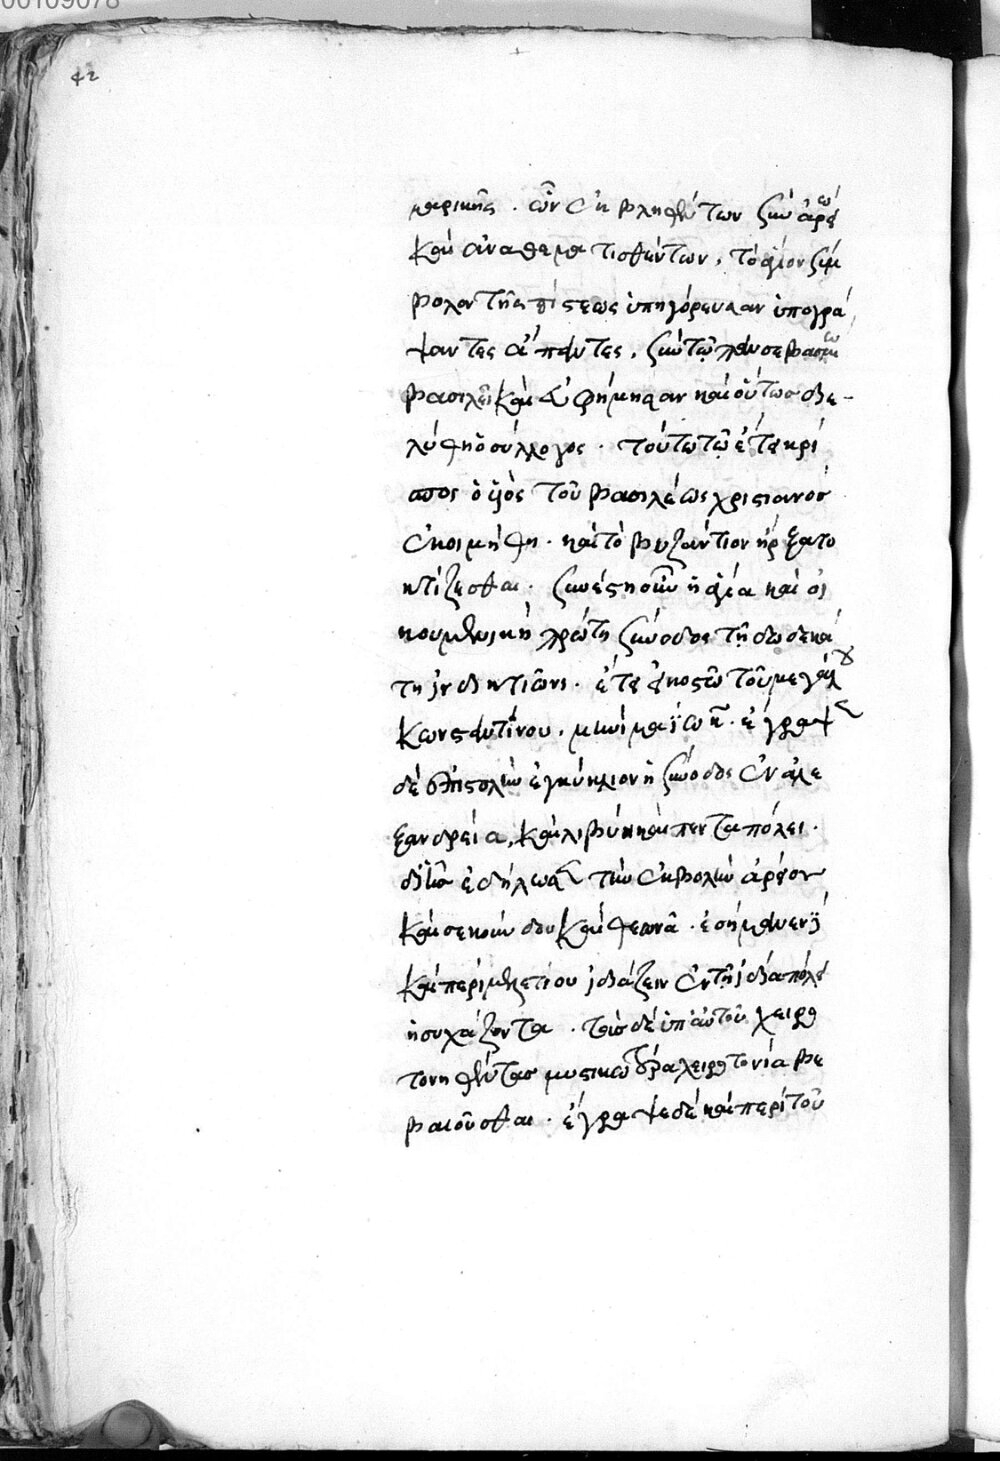 00109078
42
μαρικῆς. ὧν ἐκβληθέντων σὺν ἀρείω
καὶ ἀναθεματισθέντων, τὸ ἅγιον σύμ
βολον τῆς πίστεως ὑπηγόρευσαν ὑπογρά
ψαντες ἅπαντες, σὺν τῷ πανσεβάστω
βασιλεῖ καὶ εὐφήμησαν καὶ οὕτως διε-
λύθη ὁ σύλλογος. τούτω τῷ ἔτει κρί
σπος ὁ υἱὸς τοῦ βασιλέως χριστιανὸς
ἐκοιμήθη. καὶ τὸ βυζάντιον ἤρξατο
κτίζεσθαι. συνέστη οὖν ἡ ἁγία καὶ οἰ
κουμενικὴ πρώτη σύνοδος τῇ δωδεκά
τη ἰνδικτιῶνι. ἔτει εἰκοστῶ τοῦ μεγάλου
κωνσταντίνου, μηνὶ μαΐω κ. ἔγραψε
δὲ ἐπιστολὴν ἐγκύκλιον ἡ σύνοδος ἐν ἀλε
ξανδρεία, καὶ λιβύη καὶ πενταπόλει.
δι' ἧς ἐδήλωσε τὴν ἐκβολὴν ἀρείου
καὶ σεκούνδου καὶ θεωνᾶ. ἐσήμανεν δὲ
καὶ περὶ μελετίου ἰδιάζειν ἐν τῇ ἰδία πόλει
ἡσυχάζοντα. τοὺς δὲ ὑπ' αὐτοῦ χειρο
τονηθέντας μυστικωτέρα χειροτονία βε
βαιοῦσθαι. ἔγραψε δὲ καὶ περὶ τοῦ